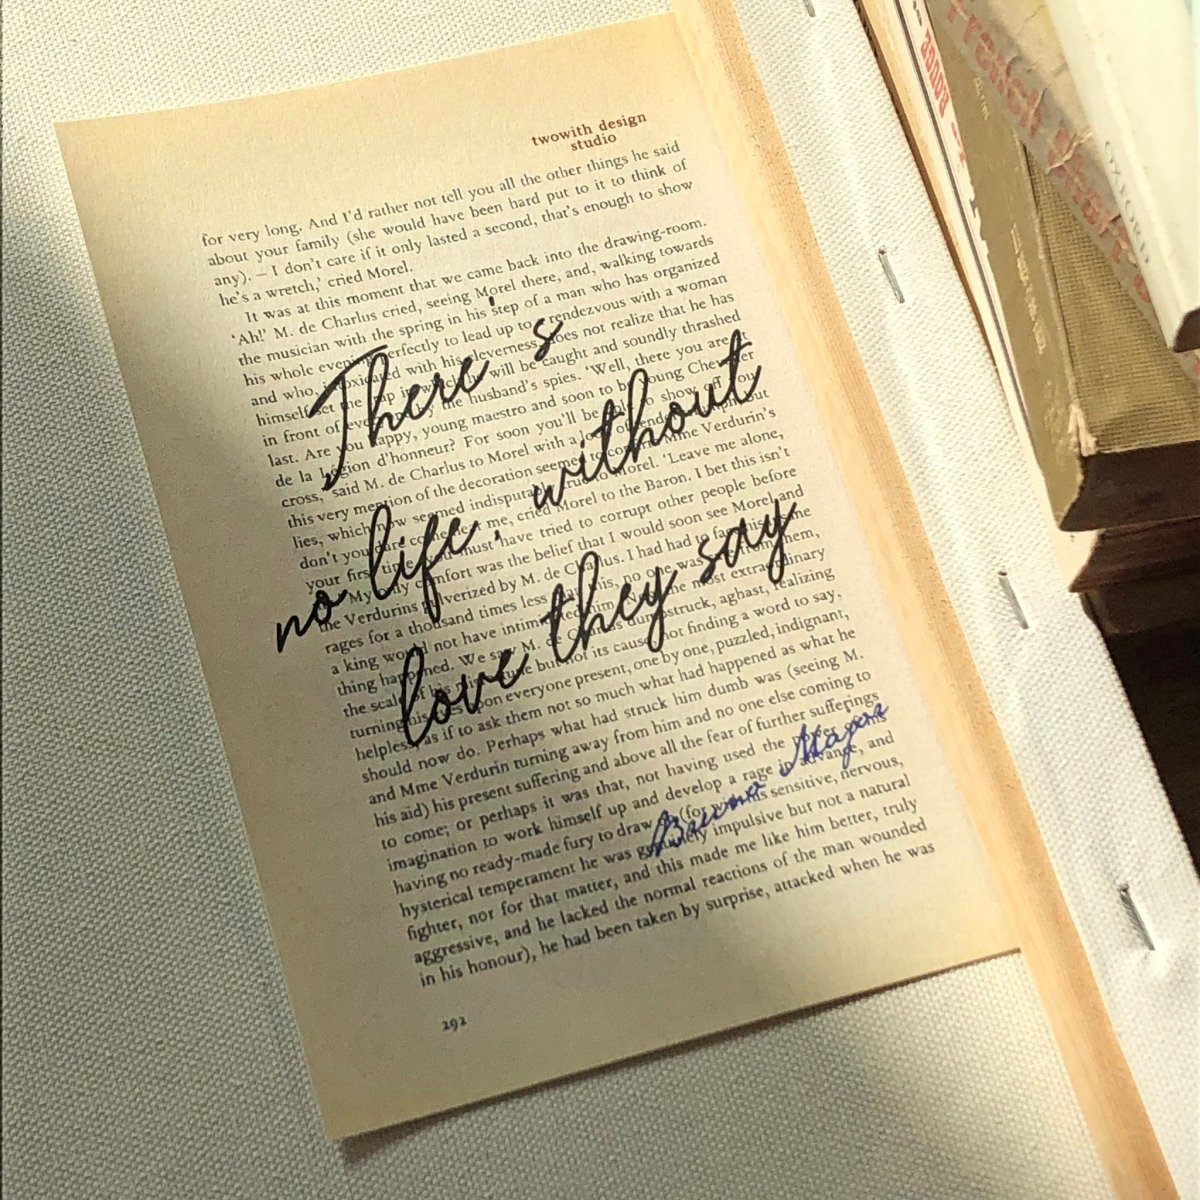 twowith design
studio
for very long. And I'd rather not tell you all the other things he said
about your family (she would have been hard put to it to think of
any). – I don't care if it only lasted a second, that's enough to show
he's a wretch,' cried Morel.
It was at this moment that we came back into the drawing-room.
'Ah!' M. de Charlus cried, seeing Morel there, and, walking towards
the musician with the spring in his step of a man who has organized
his whole evening perfectly to lead up to a rendezvous with a woman
and who, intoxicated with his cleverness, does not realize that he has
himself set the trap in which will be caught and soundly thrashed
in front of the husband's spies. 'Well, there you are at
last. Are you happy, young maestro and soon to be young Chevalier
de la Légion d'honneur? For soon you'll be to show off you
cross,' said M. de Charlus to Morel with a
this very mention of the decoration seemed to Mme Verdurin's
lies, which now seemed to Morel. 'Leave me alone,
don't you dare come me, cried Morel to the Baron. I bet this isn't
your first must have tried to corrupt other people before
My only comfort was the belief that I would soon see Morel and
the Verdurins pulverized by M. de Charlus. I had had to face his
rages for a thousand times less than this, no one was from them,
a king would not have intimidated him. the most extraordinary
thing happened. We saw M. de Charlus dumbstruck, aghast, realizing
the scale of his but not its cause, not finding a word to say,
turning his upon everyone present, one by one, puzzled, indignant,
helpless, as if to ask them not so much what had happened as what he
should now do. Perhaps what had struck him dumb was (seeing M.
and Mme Verdurin turning away from him and no one else coming to
his aid) his present suffering and above all the fear of further sufferings
to come; or perhaps it was that, not having used the
imagination to work himself up and develop a rage in advance, and
having no ready-made fury to draw (for his sensitive, nervous,
hysterical temperament he was genuinely impulsive but not a natural
fighter, nor for that matter, and this made me like him better, truly
aggressive, and he lacked the normal reactions of the man wounded
in his honour), he had been taken by surprise, attacked when he was
292
There's
no life, without
love they say
OXFORD